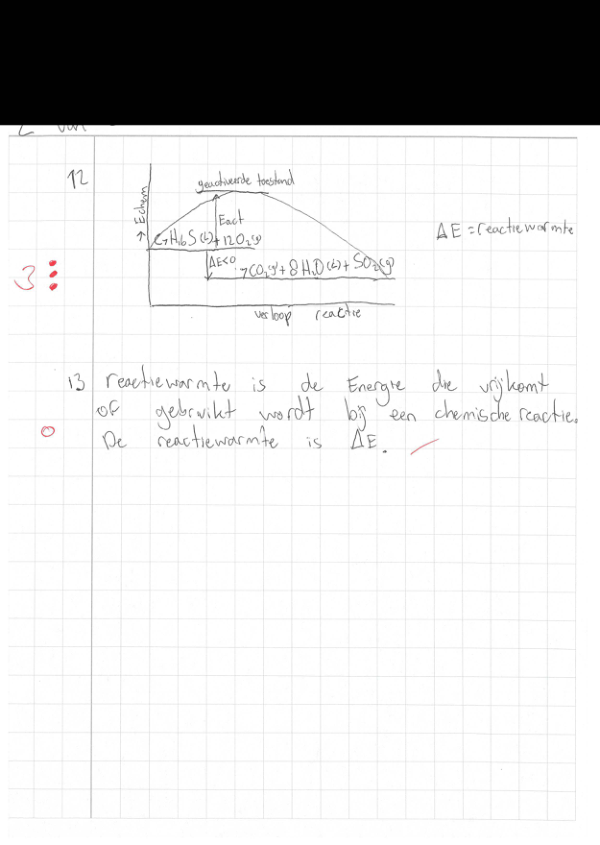 12
geactiveerde toestand
↑ Echem
Eact
C7H16S(l) + 12O2(g)
ΔE = reactiewarmte
ΔE<0
7CO2(g) + 8H2O(l) + SO2(g)
3
verloop reactie
13 reactiewarmte is de Energie die vrijkomt
of gebruikt wordt bij een chemische reactie.
0
De reactiewarmte is ΔE.